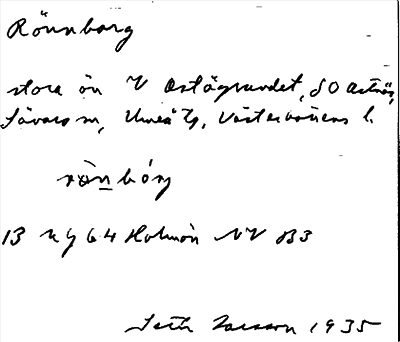 Rönnborg
stora ön V Ostögrundet, SO Ostnäs,
Sävars sn, Umeå tg, Västerbottens l.
rön bórg
13 Ny 64 Holmön NV B3
Seth Larsson 1935